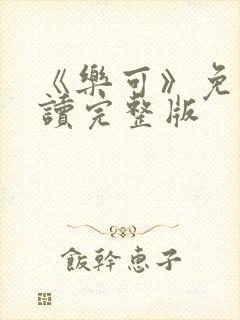 《樂可》免
讀完整版
飯幹恵子